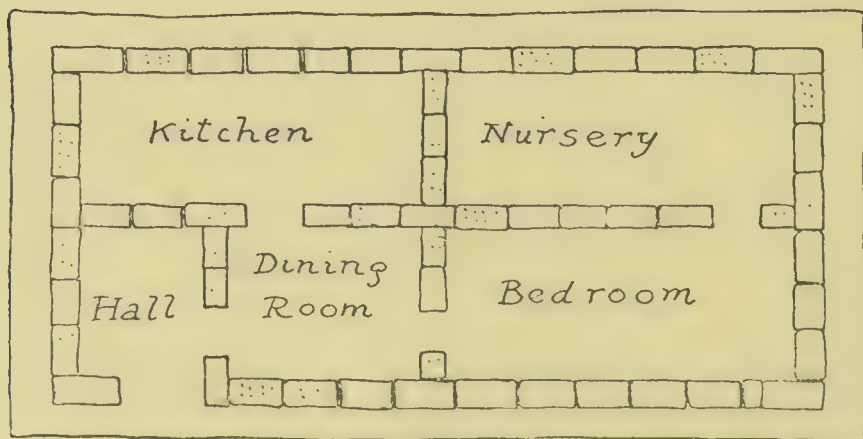 Kitchen
Nursery
Hall
Dining
Room
Bedroom